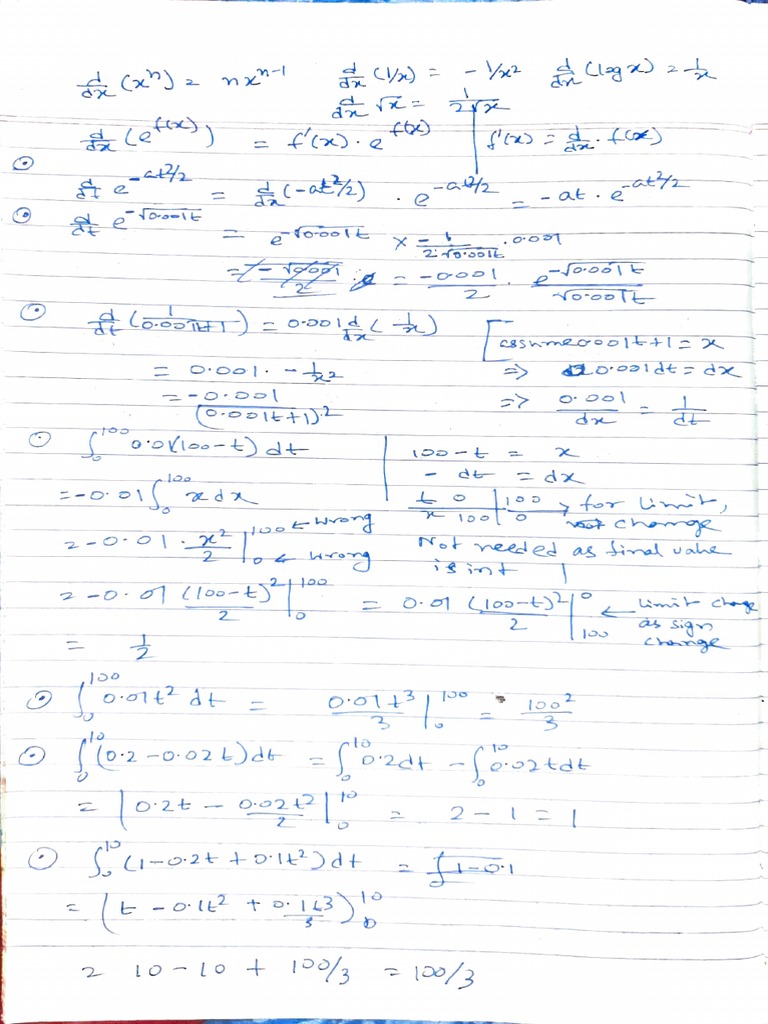 d/dx (xⁿ) = nxⁿ⁻¹ d/dx (1/x) = - 1/x² d/dx (log x) = 1/x
d/dx √x = 1/(2√x)
d/dx (e^f(x)) = f'(x) · e^f(x) | f'(x) = d/dx · f(x)
⊙ d/dt e^(-at²/2) = d/dx (-at²/2) · e^(-at²/2) = -at · e^(-at²/2)
⊙ d/dt e^(-√0.001t) = e^(-√0.001t) × -1/(2√0.001t) · 0.001
= -√0.001/2 · = -0.001/2 · e^(-√0.001t)/√0.001t
⊙ d/dt (1/(0.001t+1)) = 0.001 d/dx (1/x) [assume 0.001t+1 = x
= 0.001 · -1/x² => 0.001dt = dx
= -0.001/(0.001t+1)² => 0.001/dx = 1/dt
⊙ ∫₀¹⁰⁰ 0.01(100-t) dt | 100-t = x
- dt = dx
= -0.01 ∫₀¹⁰⁰ x dx t 0 | 100 → for limit,
x 100 | 0 change
= -0.01 · x²/2 |₀¹⁰⁰ ← wrong ← wrong Not needed as final value
is in t
= -0.01 (100-t)²/2 |₀¹⁰⁰ = 0.01 (100-t)²/2 |₁₀₀⁰ ← Limit change
as sign
change
= 1/2
⊙ ∫₀¹⁰⁰ 0.01t² dt = 0.01t³/3 |₀¹⁰⁰ = 100²/3
⊙ ∫₀¹⁰ (0.2-0.02t)dt = ∫₀¹⁰ 0.2dt - ∫₀¹⁰ 0.02tdt
= | 0.2t - 0.02t²/2 |₀¹⁰ = 2-1 = 1
⊙ ∫₀¹⁰ (1-0.2t+0.1t²)dt = ∫1-0.1
= (t - 0.1t² + 0.1t³/3)₀¹⁰
= 10-10 + 100/3 = 100/3